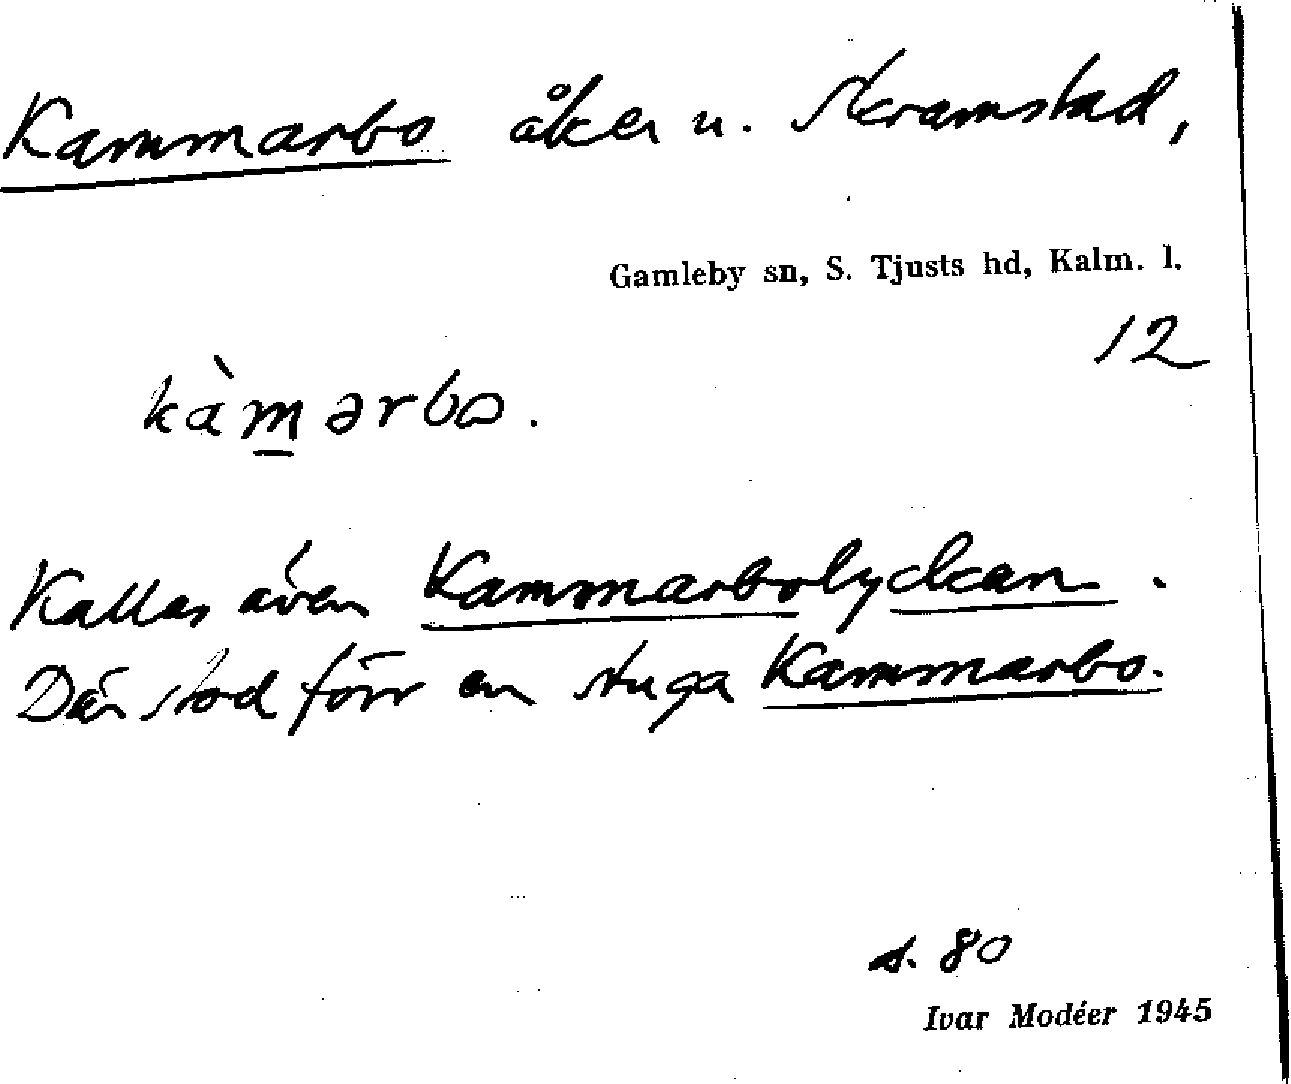 Kammarbo åker u. Skramstad,
Gamleby sn, S. Tjusts hd, Kalm. l.
12
kàmərbo.
Kallas även Kammarbolyckan.
Där stod förr en stuga Kammarbo.
s. 80
Ivar Modéer 1945